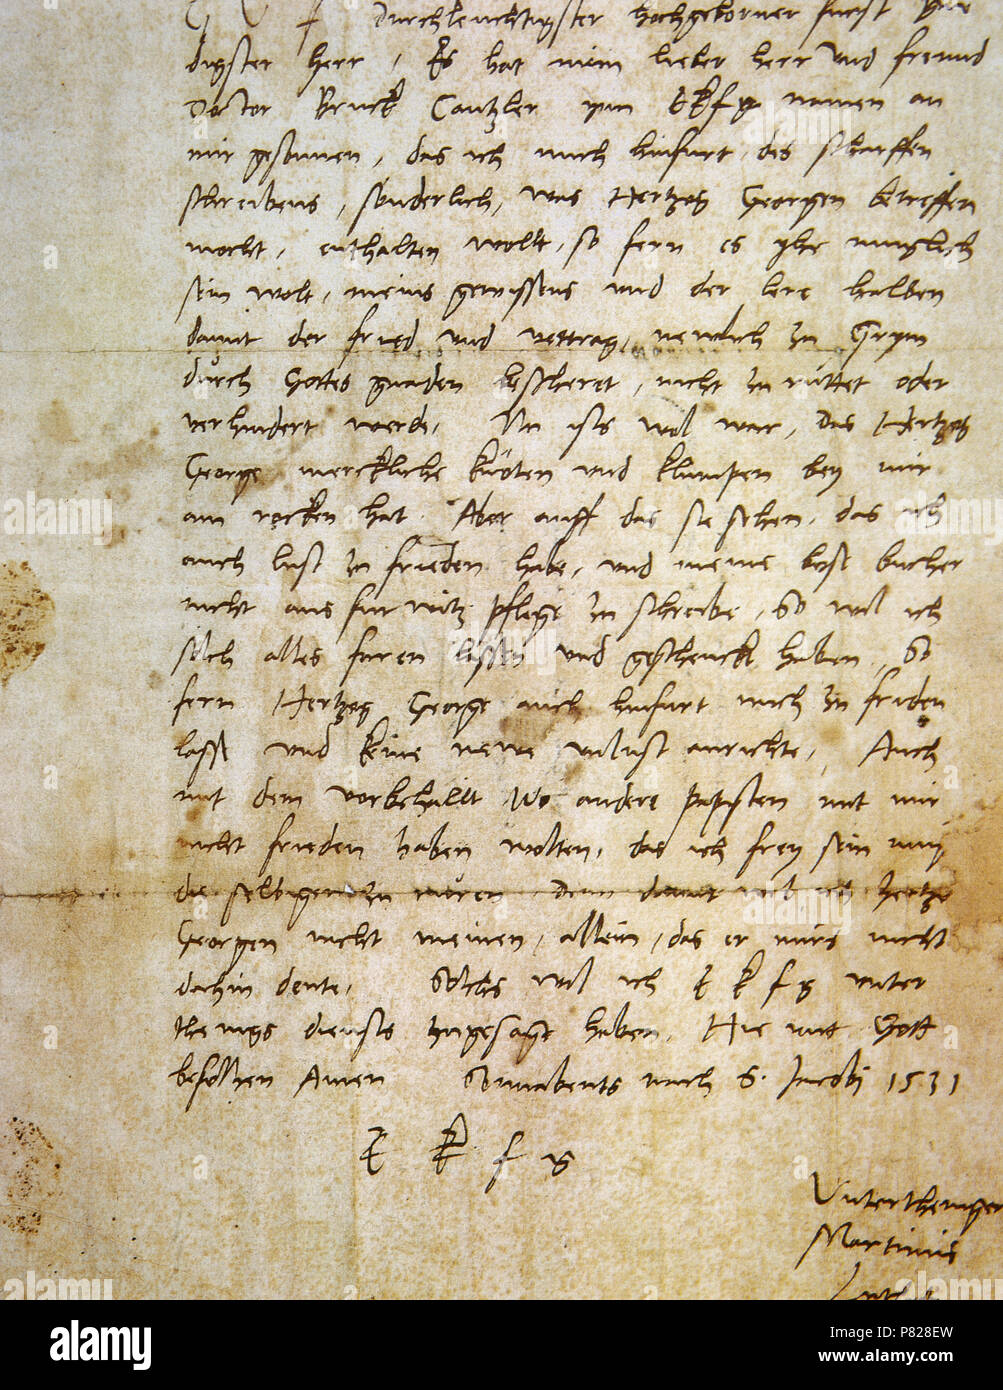 G V f Durchleuchtigster hochgeborner furst gne
digster herr, Es hat mein lieber herr vnd freund
Doctor Bruck Cantzler ynn E k f g namen an
mir gesonnen, das ich mich hinfurt des scharffen
schreibens, sonderlich, was Hertzog Georgen betreffen
mocht, enthalten wollt, so fern es yhe muglich
sein wolt, meins gewissens vnd der lere halben
damit der fried vnd vertrag, newlich zu Grym
durch Gottes gnaden bescheret, nicht zu ruttet oder
verhindert werde, Nu ists wol war, das Hertzog
George merckliche knoten vnd klumpen bey mir
am rocken hat. Aber auff das sie sehen, das ich
auch lust zu frieden habe, vnd meine bose bucher
nicht aus furwitz pflege zu schreiben, So wil ich
solch alles faren lassen vnd geschenckt haben, So
fern Hertzog George auch hinfurt mich zu friden
lasse vnd keine newe vnlust anrichte, Auch
mit dem vorbehallt, Wo andere papisten mit mir
nicht frieden haben wolten, das ich frey sein mug
die selbigen zu ruren Denn damit wil ich hertzo
Georgen nicht meinen, allein, das er mirs nicht
dahin deute, Solchs wil ich E k f g vnter
thenigs diensts zugesagt haben, Hie mit Gott
befolhen Amen Sonnabents nach S. Jacobi 1531
E k f g
Untertheniger
Martinus
Luther
alamy
a
Image ID: P828EW
www.alamy.com